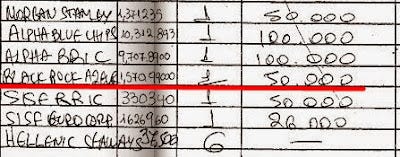 MORGAN STANLEY 1,371235 1 50.000
ALPHA BLUE CHIPS 10,312.893 1 100.000
ALPHA BRIC 9,707.8900 1 100.000
BLACK ROCK 1,570.49000 1 50.000
SISF BRIC 330340 1 50.000
SISF EURO CORP. 1626960 1 20.000
HELLENIC SEAWAYS 37500 6 —